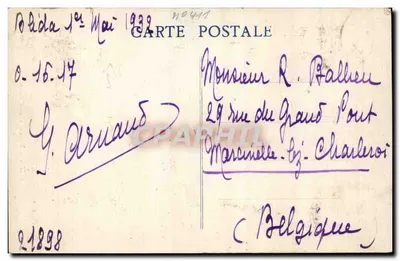 Blida 1er Mai 1932
no 411
CARTE POSTALE
0-15-17
G. Arnaud
21898
Monsieur R. Ballieu
29 rue du Grand Pont
Marcinelle-lez-Charleroi
(Belgique)
CPAPHIL